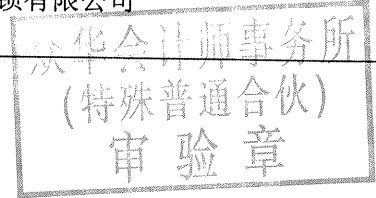 锁有限公司
众华会计师事务所
(特殊普通合伙)
审验章